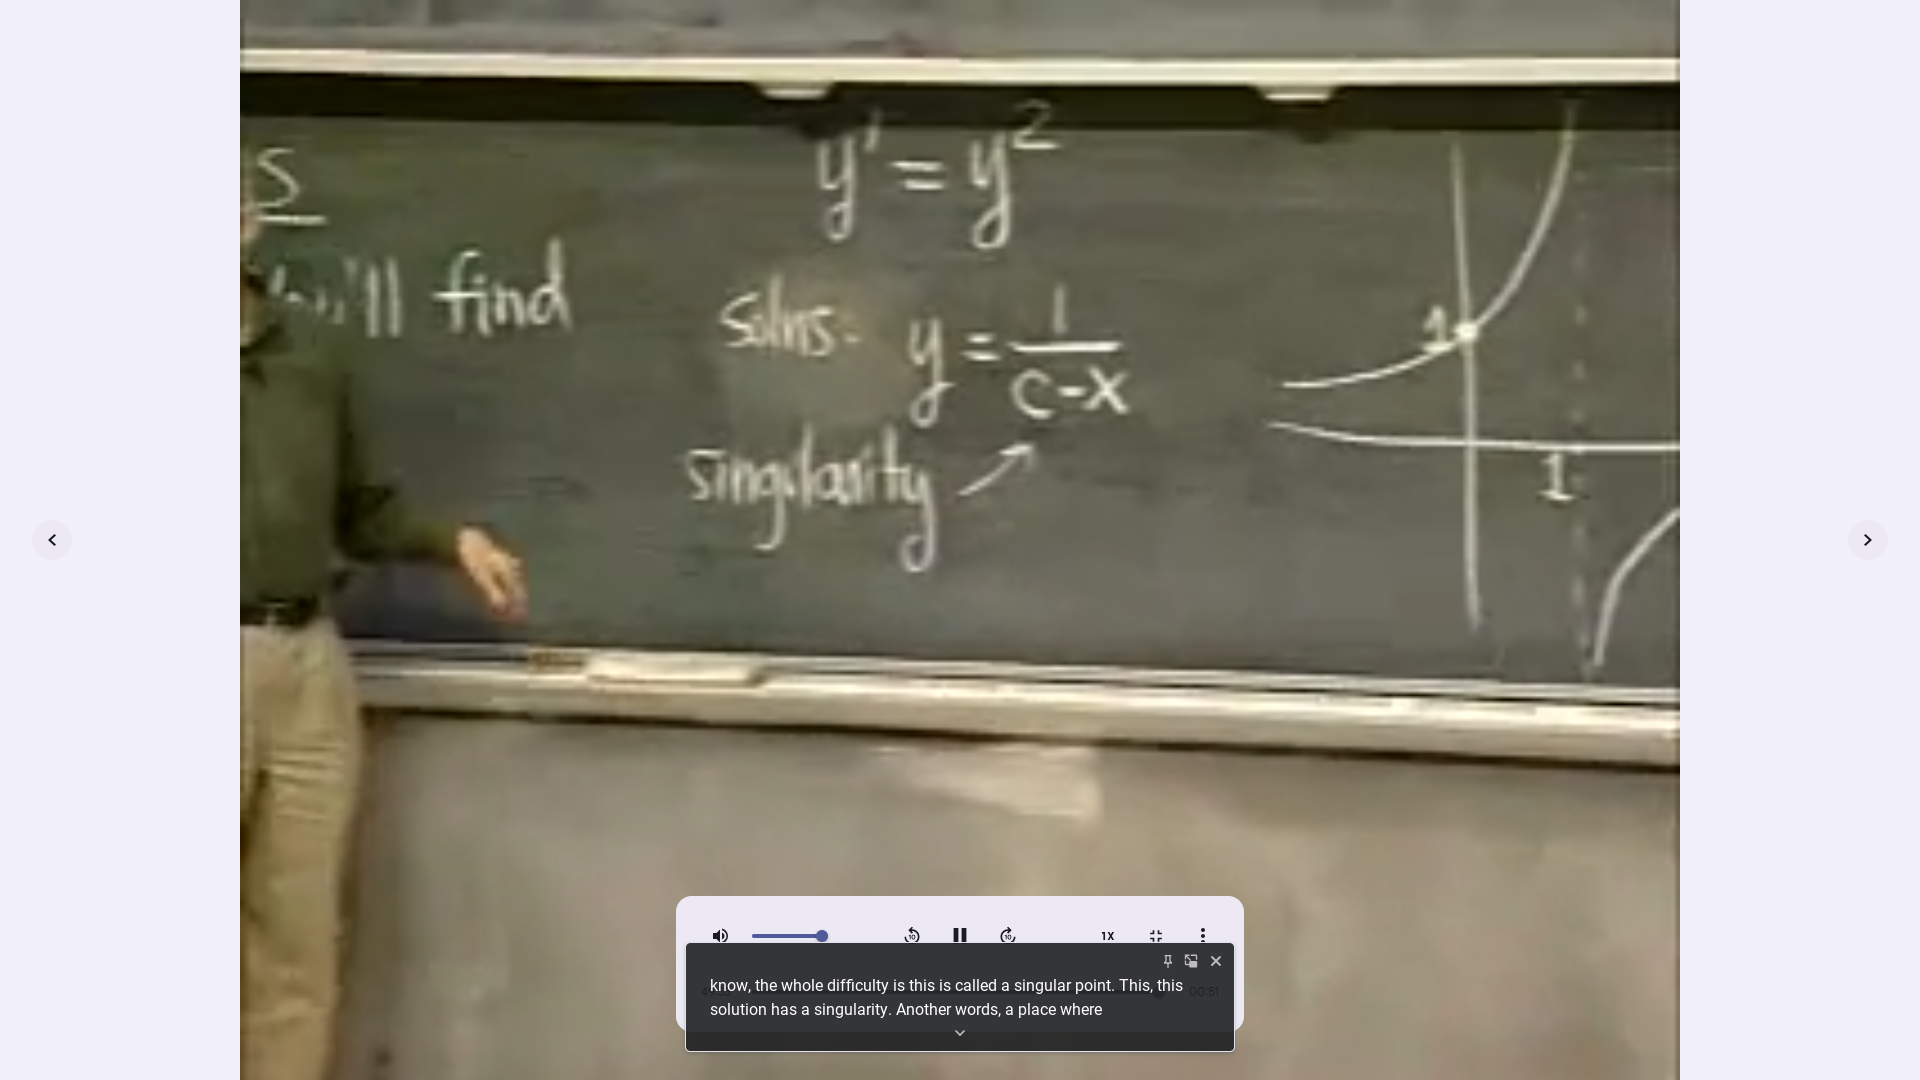 S
'll find
y' = y²
solns. y = 1/(c-x)
singularity
1
1
1X
00:51
know, the whole difficulty is this is called a singular point. This, this
solution has a singularity. Another words, a place where